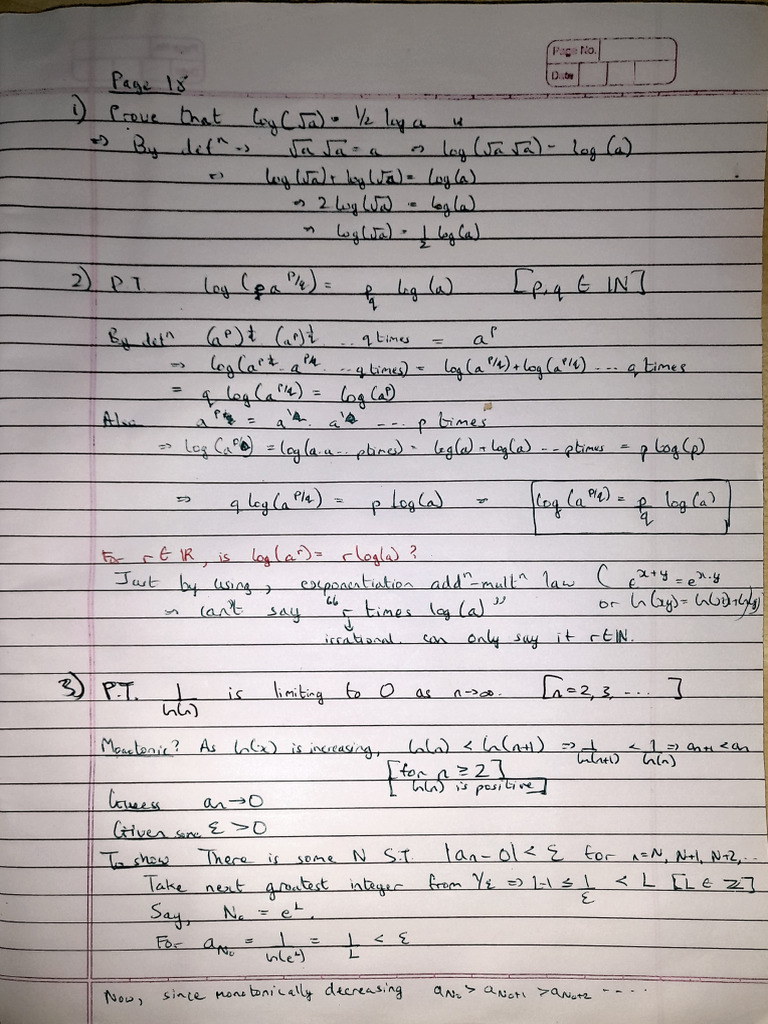 Page No.
Date
Page 18
1) Prove that log(√a) = 1/2 log a
=> By defⁿ => √a √a = a => log(√a √a) = log(a)
=> log(√a) + log(√a) = log(a)
=> 2 log(√a) = log(a)
=> log(√a) = 1/2 log(a)
2) P.T. log(a^(p/q)) = p/q log(a) [p, q ∈ IN]
By defⁿ (a^p)^(1/q) (a^p)^(1/q) ... q times = a^p
=> log(a^(p/q) . a^(p/q) ... q times) = log(a^(p/q)) + log(a^(p/q)) ... q times
= q log(a^(p/q)) = log(a^p)
Also a^p = a . a ... p times
=> log(a^p) = log(a.a... p times) = log(a) + log(a) ... p times = p log(p)
=> q log(a^(p/q)) = p log(a) = log(a^(p/q)) = p/q log(a)
For r ∈ IR, is log(a^r) = r log(a) ?
Just by using, exponentiation addⁿ-multⁿ law ( e^(x+y) = e^x.y
=> can't say "r times log(a)" or ln(xy) = ln(x)+ln(y))
↓
irrational. can only say if r∈IN.
3) P.T. 1/ln(n) is limiting to 0 as n→∞. [n = 2, 3, ... ]
Monotonic? As ln(x) is increasing, ln(n) < ln(n+1) => 1/ln(n+1) < 1/ln(n) => an+1 < an
[for n ≥ 2]
[ln(n) is positive]
Guess an → 0
Given some ε > 0
To show There is some N S.T. |an - 0| < ε for n = N, N+1, N+2, ..
Take next greatest integer from 1/ε => L-1 ≤ 1/ε < L [L ∈ ℤ]
Say, N₀ = e^L.
For aN₀ = 1/ln(e^L) = 1/L < ε
Now, since monotonically decreasing aN₀ > aN₀+1 > aN₀+2 ....